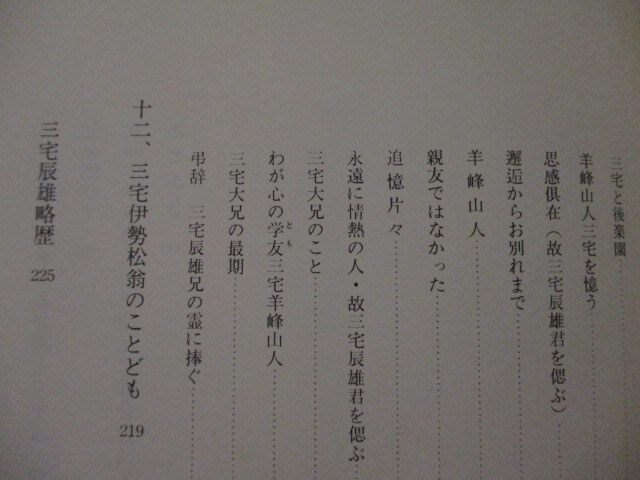 三宅と後楽園
羊峰山人三宅を憶う
思感俱在（故三宅辰雄君を偲ぶ）
邂逅からお別れまで
羊峰山人
親友ではなかった
追憶片々
永遠に情熱の人・故三宅辰雄君を偲ぶ
三宅大兄のこと
わが心の学友とも三宅羊峰山人
三宅大兄の最期
弔辞　三宅辰雄兄の霊に捧ぐ
十二、三宅伊勢松翁のことども 219
三宅辰雄略歴 225